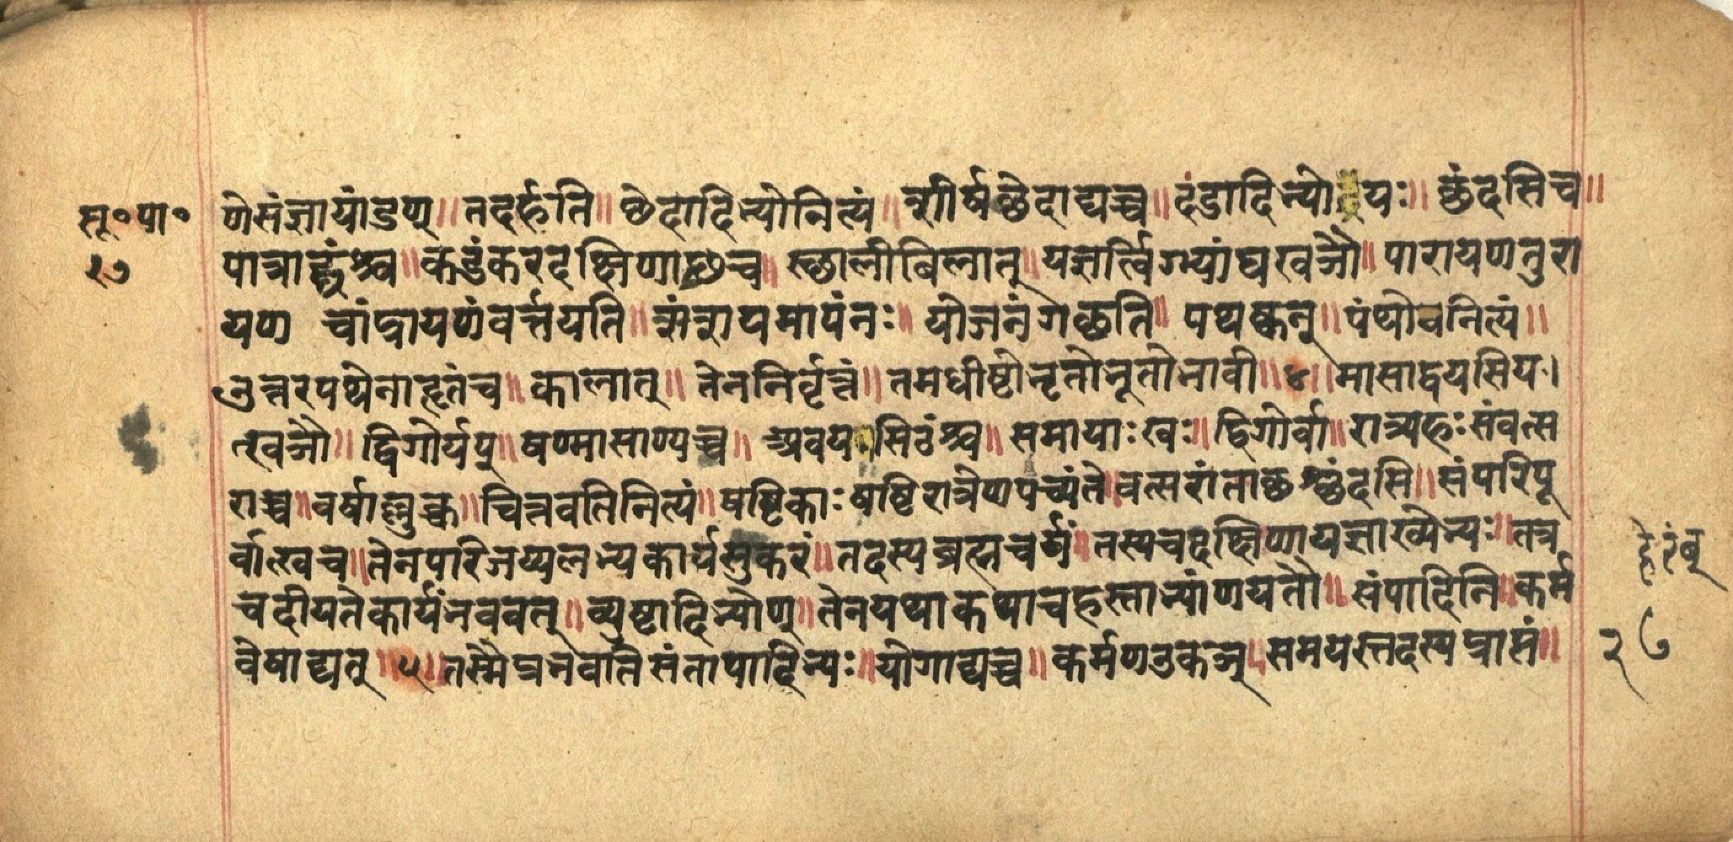 सू॰पा॰
२७
णेसंज्ञायांडण्॥तदर्हति॥छेदादिभ्योनित्यं॥शीर्षछेदाद्यच्च॥दंडादिभ्योयः॥छंदसिच॥
पात्राद्घंश्च॥कडंकरदक्षिणाछच॥स्थालीबिलात्॥यज्ञर्त्विग्भ्यांघखञौ॥पारायणतुरा
यण चांद्रायणंवर्त्तयति॥संशयमापंनः॥योजनंगछति॥पथष्कन्॥पंथोवनित्यं॥
उत्तरपथेनाहृतंच॥कालात्॥तेननिर्वृत्तं॥तमधीष्टोभृतोभूतोभावी॥४॥मासाद्वयसिय।
त्खञौ॥द्विगोर्यप्॥षण्मासाण्यच्च॥अवयसिठंश्च॥समायाःखः॥द्विगोर्वा॥रात्र्यहःसंवत्स
राच्च॥वर्षाल्लुक्च॥चित्तवतिनित्यं॥षष्टिकाःषष्टिरात्रेणपच्यंते॥वत्सरांताछश्छंदसि॥संपरिपू
र्वात्खच॥तेनपरिजय्यलभ्यकार्यसुकरं॥तदस्यब्रह्मचर्यं॥तस्यचदक्षिणायज्ञाख्येभ्यः॥तत्र
चदीयतेकार्यंभववत्॥व्युष्टादिभ्योण्॥तेनयथाकथाचहस्ताभ्यांणयतौ॥संपादिनि॥कर्म
वेषाद्यत्॥५॥तस्मैप्रभवतिसंतापादिभ्यः॥योगाद्यच्च॥कर्मणउकञ्॥समयस्तदस्यप्राप्तं॥
२७